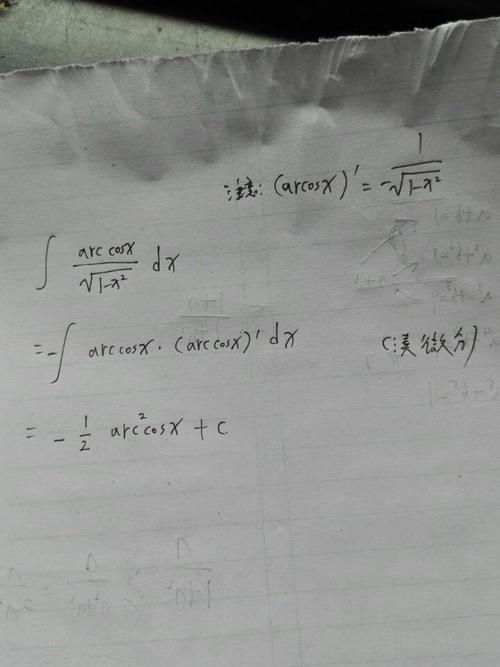 注意: (arcosx)' = 1/-√(1-x²)
∫ arc cosx/√(1-x²) dx
= -∫ arc cosx · (arc cosx)' dx (凑微分)
= -1/2 arc²cosx + C